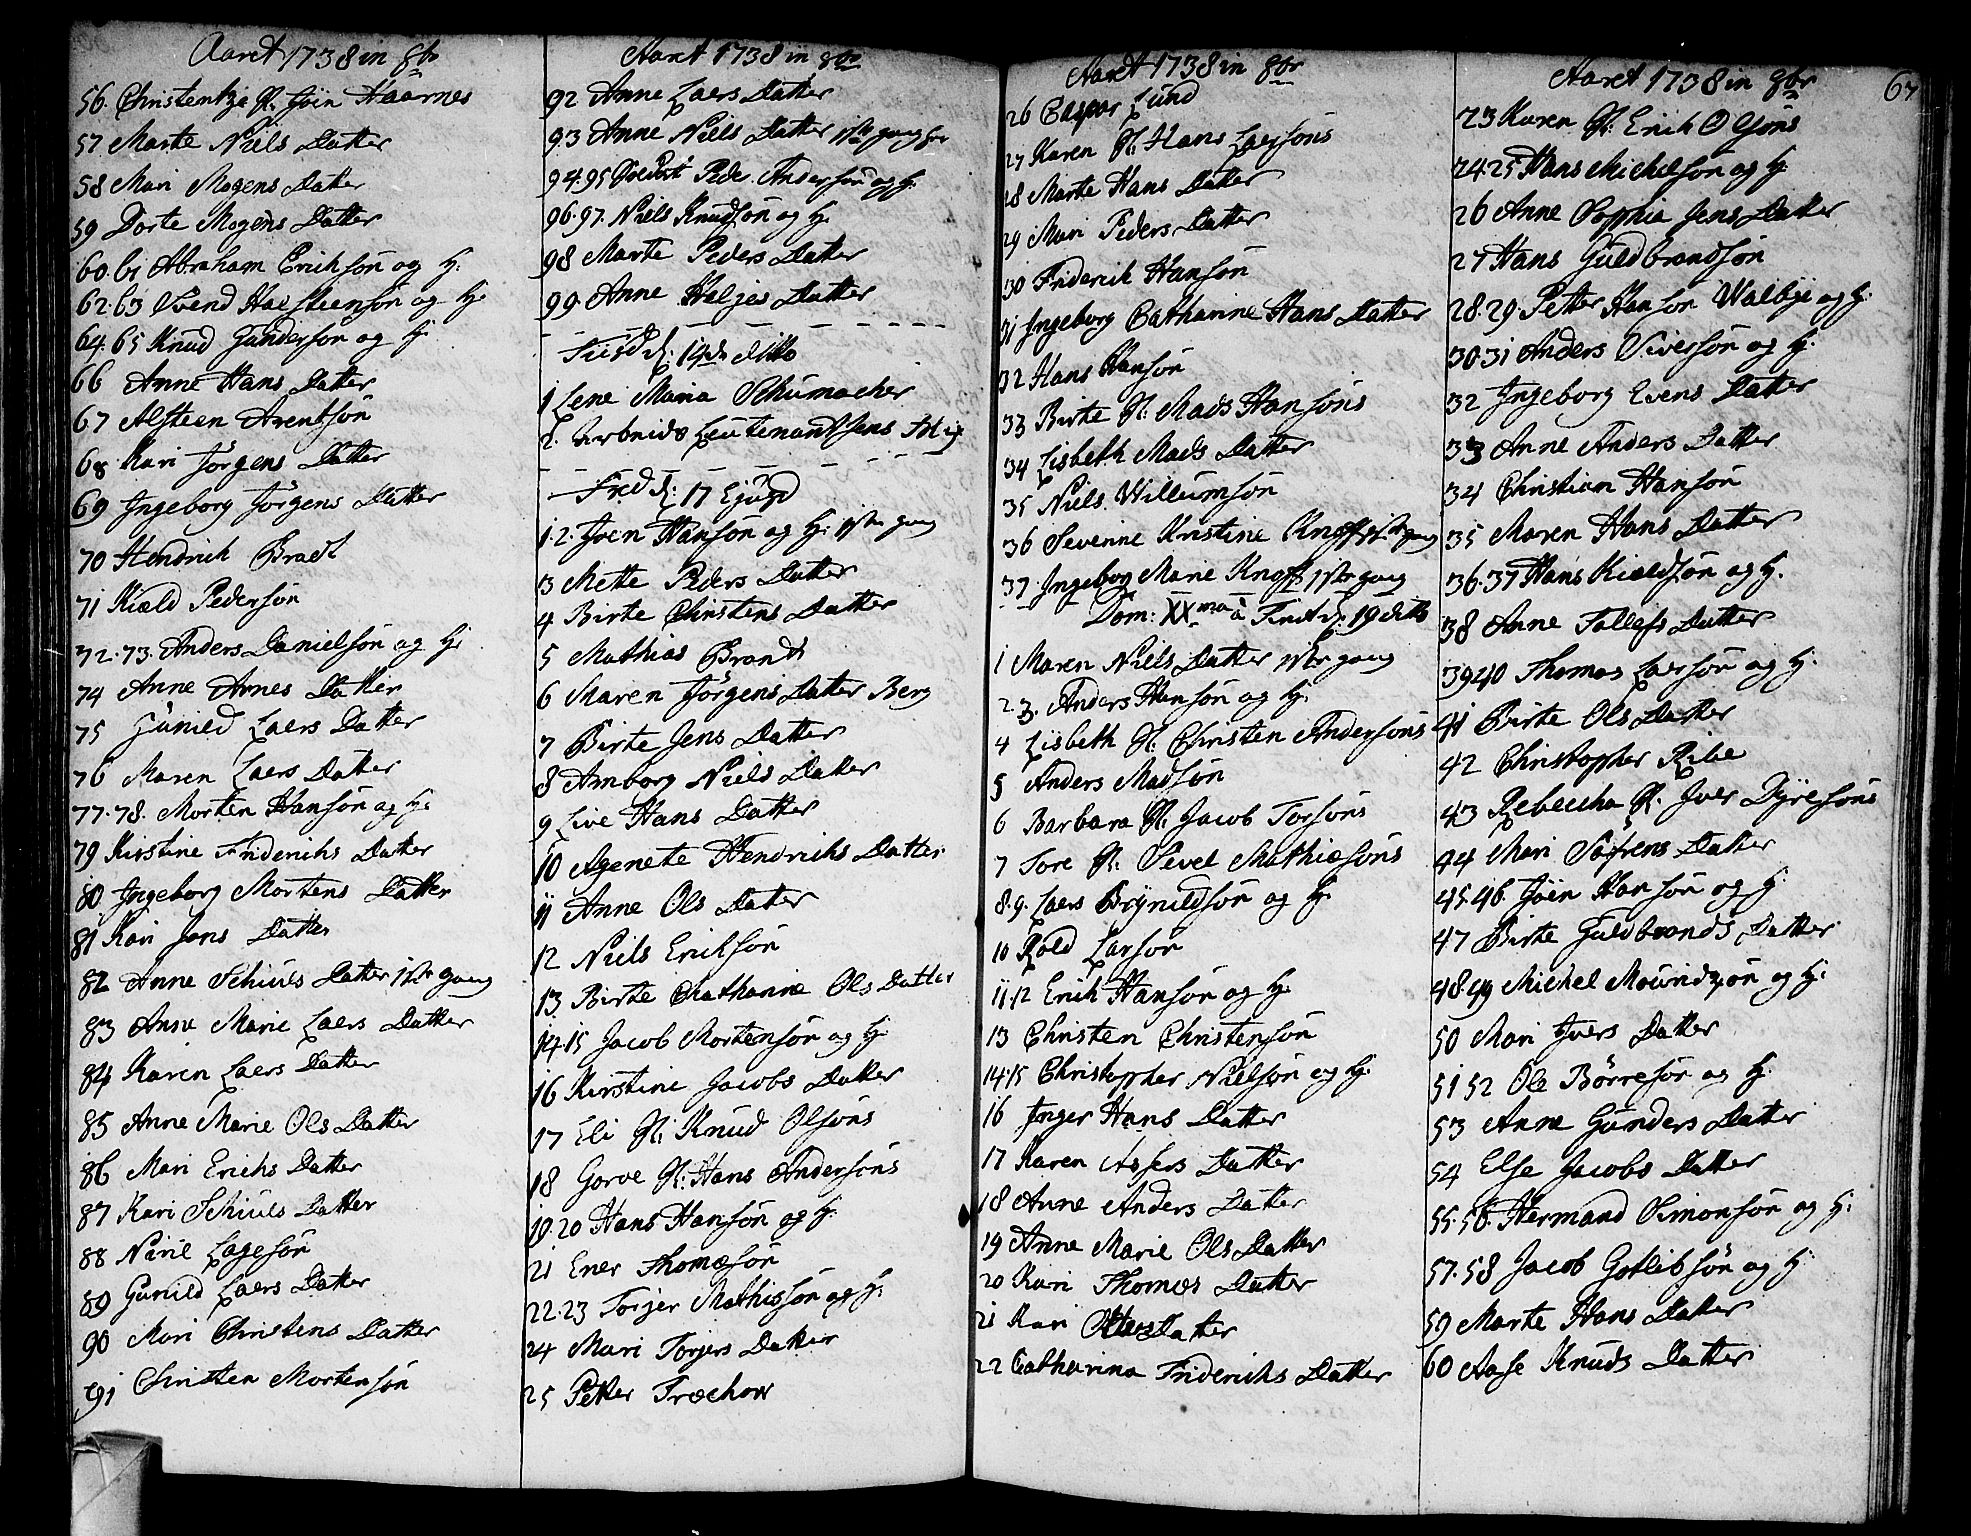 Aaret 1738 in 8br
56. Christentze H. Join Haarnes
57 Marte Niels Datter
58 Mari Mogens Datter
59 Dorte Mogens Datter
60. 61 Abraham Erichsøn og H:
62. 63 Svend Halsteensøn og H:
64. 65 Knud Gundersøn og H:
66 Anne Hans Datter
67 Alsteen Arentsøn
68 Kari Jørgens Datter
69 Ingeborg Jørgens Datter
70 Hendrich Bradt
71 Kield Pedersøn
72. 73. Anders Danielsøn og H:
74 Anne Arnes Datter
75 Gunild Laers Datter
76 Maren Laers Datter
77. 78. Morten Hansøn og H:
79 Kirstine Friderichs Datter
80 Ingeborg Mortens Datter
81 Kari Jens Datter
82 Anne Schiuls Datter 1ste gang
83 Anne Marie Laers Datter
84 Karen Laers Datter
85 Anne Marie Ols Datter
86 Mari Erichs Datter
87 Kari Schiuls Datter
88 Niriel Lagesøn
89 Gunild Laers Datter
90 Mari Christens Datter
91 Christen Mortensøn
Aaret 1738 in 8br
92 Anne Laers Datter
93 Anne Niels Datter 1ste gang
94. 95 Peder Andersøn og H:
96. 97. Niels Knudsøn og H:
98 Marte Peders Datter
99. Anne Heljes Datter
Tiisd d: 14de ditto
1 Lene Maria Schumacher
2. Leutenantsens
Fred d: 17 Ejusd
1. 2. Iven Hansøn og H: 1ste gang
3 Mette Peders Datter
4 Birte Christens Datter
5 Mathias Brandt
6 Maren Jørgens Datter Berg
7 Birte Jens Datter
8 Arnborg Niels Datter
9 Live Hans Datter
10 Agenete Hendrichs Datter
11 Anne Ols Datter
12 Niels Erichsøn
13 Birte Chatharine Ols Datter
14. 15 Jacob Mortensøn og H:
16 Kirstine Jacobs Datter
17 Eli H: Knud Olsøns
18 Gorve H: Hans Andersøns
19. 20 Hans Hansøn og H:
21 Ener Thomesøn
22. 23 Torjer Mathissøn og H:
24 Mari Torjers Datter
25 Petter Træchow
Aaret 1738 in 8br
26 Casper Lund
27 Karen H: Hans Laersøns
28 Marte Hans Datter
29 Mari Peders Datter
30 Friderich Hansøn
31 Ingeborg Catharine Hans Datter
32 Hans Hansøn
33 Birte H: Mads Hansøns
34 Lisbeth Mads Datter
35 Niels Willumsøn
36 Severine Kristine Knoff 1ste gang
37. Ingeborg Marie Knoff 1ste gang
Dom: XXma a Trinit d: 19 ditto
1 Maren Niels Datter 1ste gang
2 3. Anders Hansøn og H:
4 Lisbeth H: Christen Andersøns
5 Anders Madsøn
6 Barbara H: Jacob Torsøns
7 Tore H: Sevel Mathiesøns
8. 9. Laers Brynildsøn og H:
10 Rold Larsøn
11. 12 Erich Hansøn og H:
13 Christen Christensøn
14. 15 Christopher Nielsøn og H:
16 Inger Hans Datter
17 Karen Assers Datter
18 Anne Anders Datter
19 Anne Marie Ols Datter
20 Kari Thomes Datter
21 Kari Datter
22 Catharina Friderichs Datter
Aaret 1738 in 8br
67
23 Karen H: Erich Olsøns
24. 25 Hans Michelsøn og H:
26 Anne Sophia Jens Datter
27 Hans Guldbrandsøn
28. 29 Petter Hansøn Walbye og H:
30. 31 Anders Siversøn og H:
32 Ingeborg Evens Datter
33 Anne Anders Datter
34 Christian Hansøn
35 Maren Hans Datter
36. 37 Hans Kieldsøn og H.
38 Anne Tollefs Datter
39 40 Thomas Laersøn og H:
41 Birte Ols Datter
42 Christopher Ribe
43 Rebeccha H. Iver Dyresøns
44 Mari Søfrens Datter
45. 46. Join Hansøn og H:
47 Birte Guldbrands Datter
48. 49 Michel Mouridzøn og H:
50 Mari Ivers Datter
51 52 Ole Børresøn og H:
53 Anne Gunders Datter
54 Else Jacobs Datter
55. 56. Hermand Simonsøn og H:
57. 58 Jacob Gotlibsøn og H:
59 Marte Hans Datter
60 Aase Knuds Datter